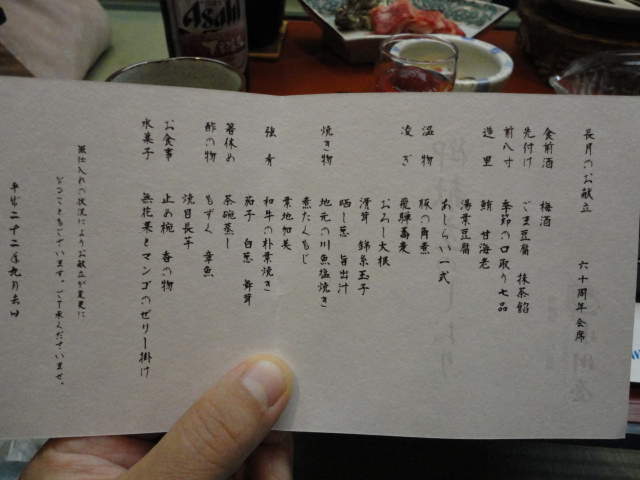 長月のお献立　六十周年会席
食前酒　梅酒
先付け　ごま豆腐　抹茶餡
前八寸　季節の口取り七品
造里　鮪　甘海老
湯葉豆腐
あしらい一式
温物　豚の角煮
凌ぎ　飛騨蕎麦
おろし大根
滑茸　錦糸玉子
晒し葱　旨出汁
焼き物　地元の川魚塩焼き
煮たくもじ
葉地加美
強肴　和牛の朴葉焼き
茄子　白葱　舞茸
箸休め　茶碗蒸し
酢の物　もずく　章魚
焼目長芋
お食事　止め椀　香の物
水菓子　無花果とマンゴのゼリー掛け
仕入れの状況によりお献立が変更に
なることもございます。ご了承くださいませ。
平成二十二年九月吉日
Asahi